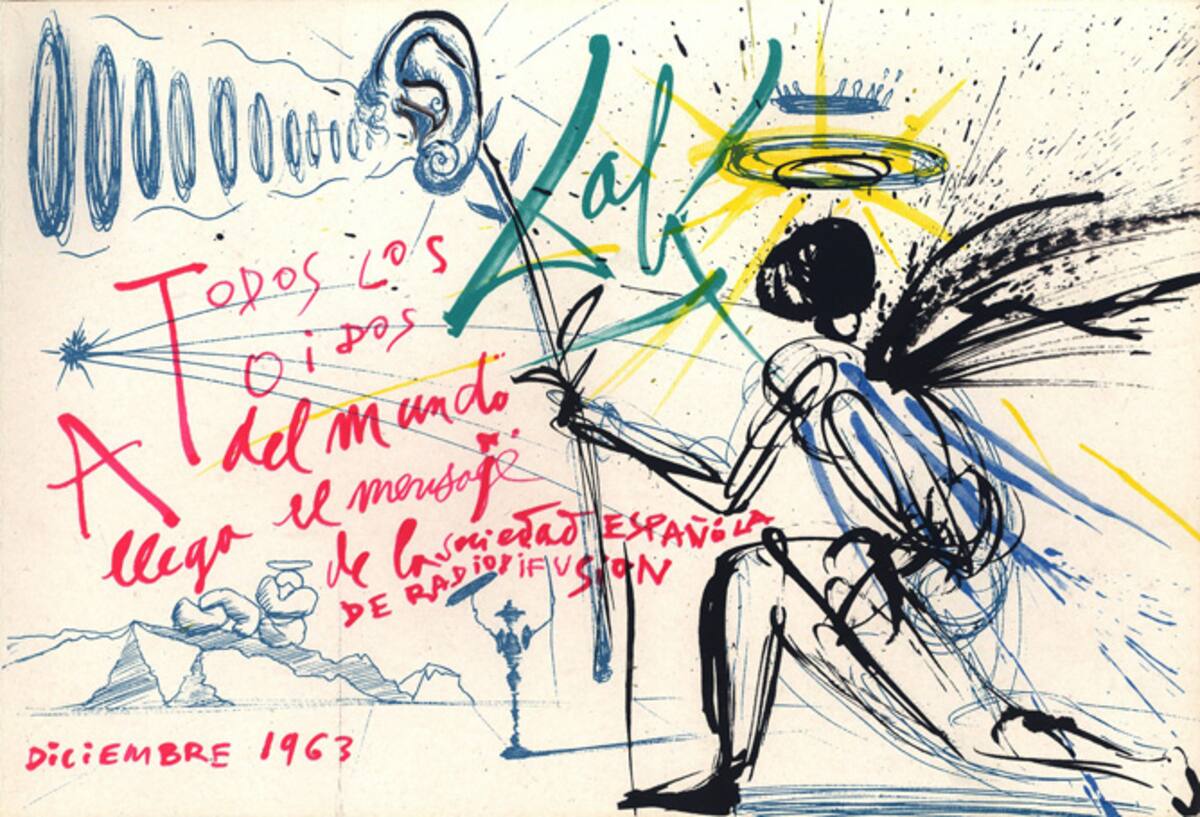 Dalí
TODOS LOS
OiDOS
A del mundo
llega el mensaje
de la sociedad ESPAÑOLA
DE RADIODIFUSION
DiCiEMBRE 1963